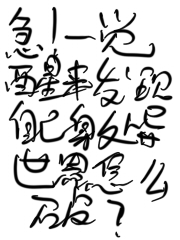 急！一觉
醒来发现
自己身处异
世界怎么
破？